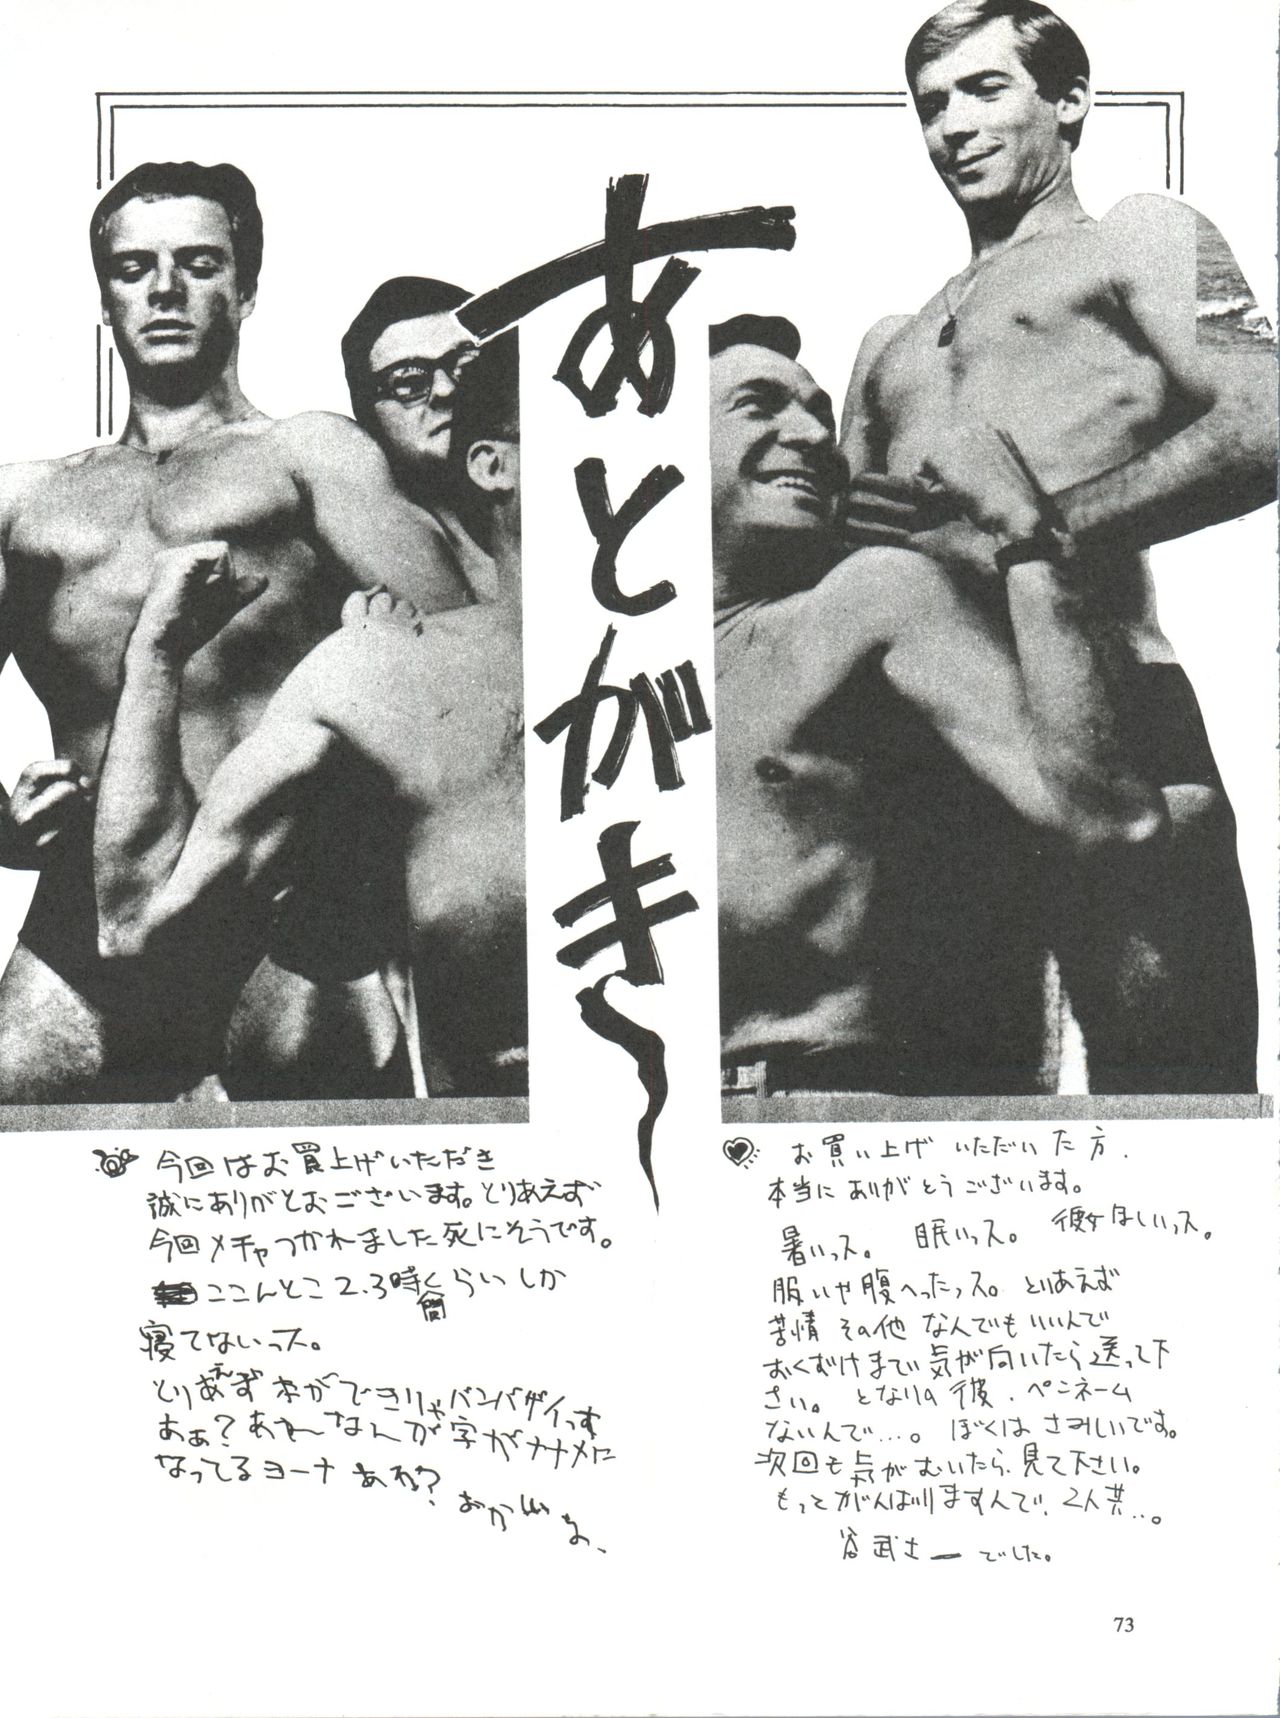 あとがき〜
今回はお買上げいただき
誠にありがとおございます。とりあえず
今回メチャつかれました死にそうです。
ここんとこ2.3時間くらいしか
寝てないっス。
とりあえず本ができりゃバンバザイっす
あぁ？あれ〜なんか字がナナメに
なってるヨーナ あれ？
おかしいな、
お買い上げ いただいた方、
本当にありがとうございます。
暑いっス。 眠いっス。 彼女ほしいっス。
眠いや腹へったっス。 とりあえず
苦情 その他 なんでもいいんで
おくずけまで気が向いたら送って下
さい。 となりの彼、ペンネーム
ないんで…。 ぼくは さみしいです。
次回も気がむいたら、見て下さい。
もっとがんばりますんで、2人共…。
谷武士 でした。
73